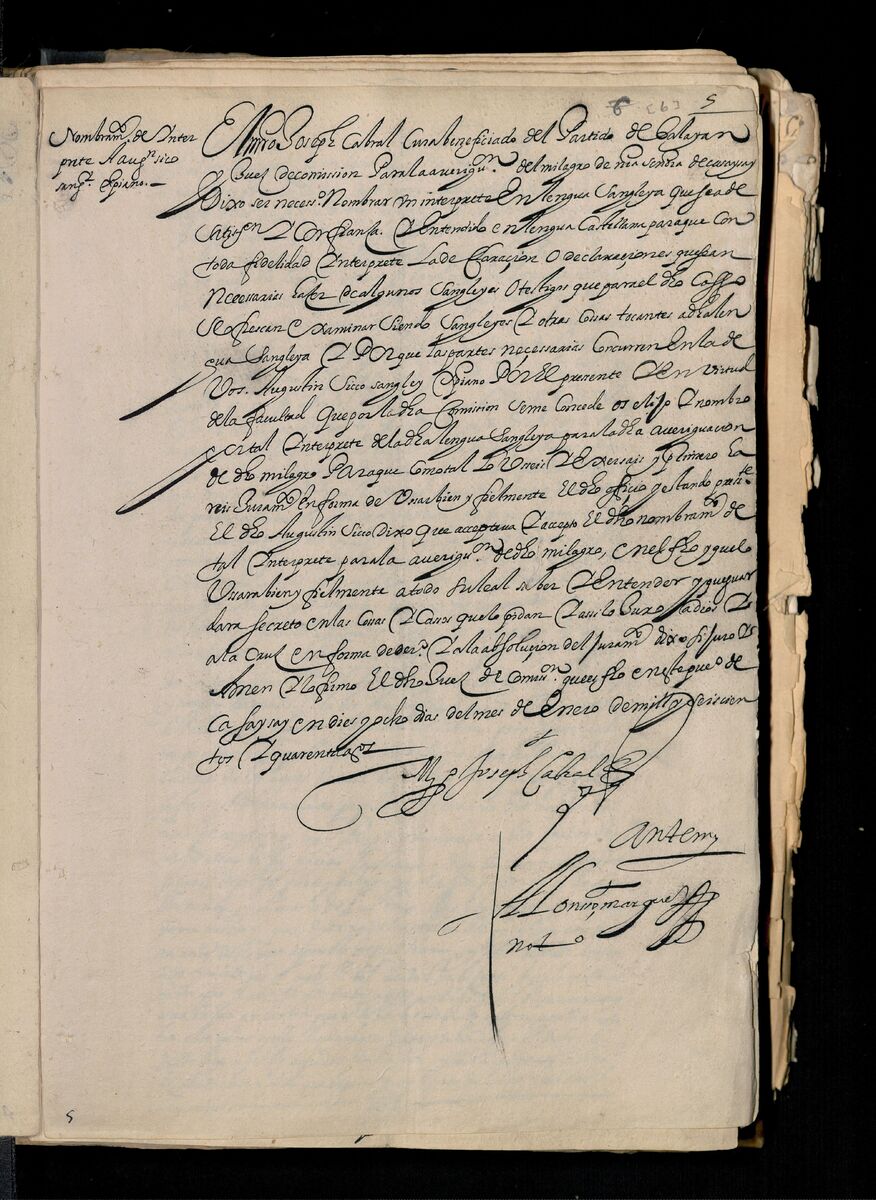 5
Nombram.to de Inter
prete A aug.n sico
sangl. Xpiano. —
El mro Joseph Cabral Cura beneficiado del Partido de Balayan
Juez de comission Para la averigu.on del milagro de nra señora de casaysay
Dixo ser necess.o Nombrar un interprete En lengua Sangleya que sea de
satisf.on Y Confiansa. Y Entendido en lengua Castellana para que con
toda fidelidad Interprete La declaraçion O declaraçiones que sean
Necessarias haser de algunos Sangleyes O testigos que para el dho Casso
se ofrescan Examinar siendo Sangleyes Y otras cosas tocantes a dha len
gua Sangleya Y Por que las partes necessarias Concurren En la de
Vos. Augustin Sicco sangley Xpiano Por El presente Y En virtud
de la facultad que por la dha Comision se me Concede os elijo Y nombro
por tal Interprete de la dha lengua Sangleya para la dha averiguacion
de dho milagro Para que Como tal Lo Useis Y Exersais y primero ha
reis Juram.to En forma de Usar bien y fielmente El dho officio y estando pres.te
El dho Augustin Sicco Dixo que acceptava Y accepto El dho nombram.to de
tal Interprete para la averigu.on de dho milagro, en el fho y que lo
Usara bien y fielmente a todo su leal saber Y Entender y que guar
dara secreto en las Cosas Y Casos que lo pidan Y assi lo Juro a dios Y
a la Cruz en forma de der.o Y a la absoluçion del Juram.to dixo si Juro Y
Amen Y lo firmo El dho Juez de Comiss.on que es fho en este pue.o de
Casaysay en dies y ocho dias del mes de Enero de mill y seiscien
tos Y quarenta a.os
M.o Joseph Cabral
Antemy
Alonso marques
not.o
5